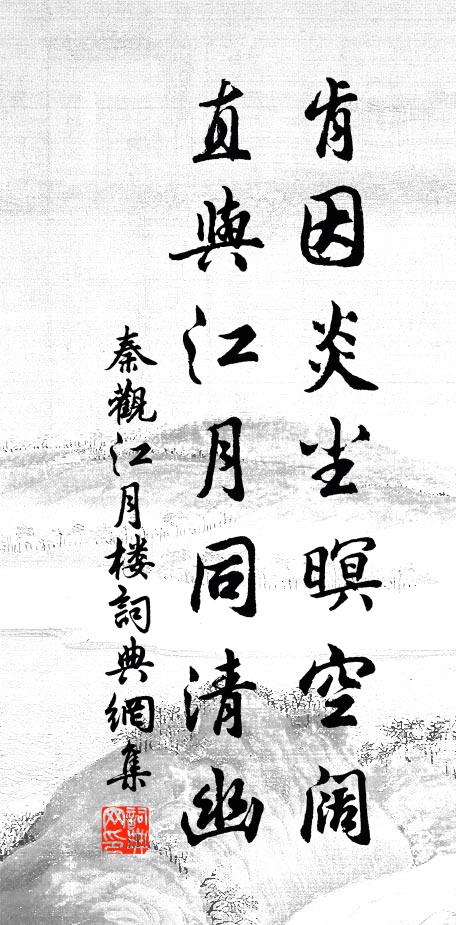 肯因炎尘暝空阔
直與江月同清幽
秦觀江月楼詞典網集